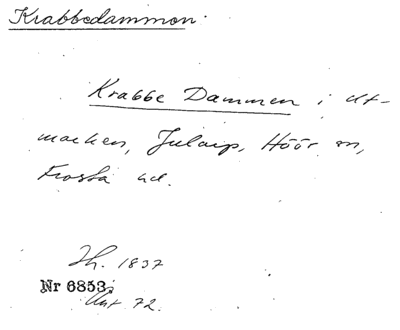 Krabbedammen.
Krabbe Dammen i ut-
marken, Jularp, Höör sn,
Frosta hd.
Jh. 1837
Nr 6853.
Akt 72.